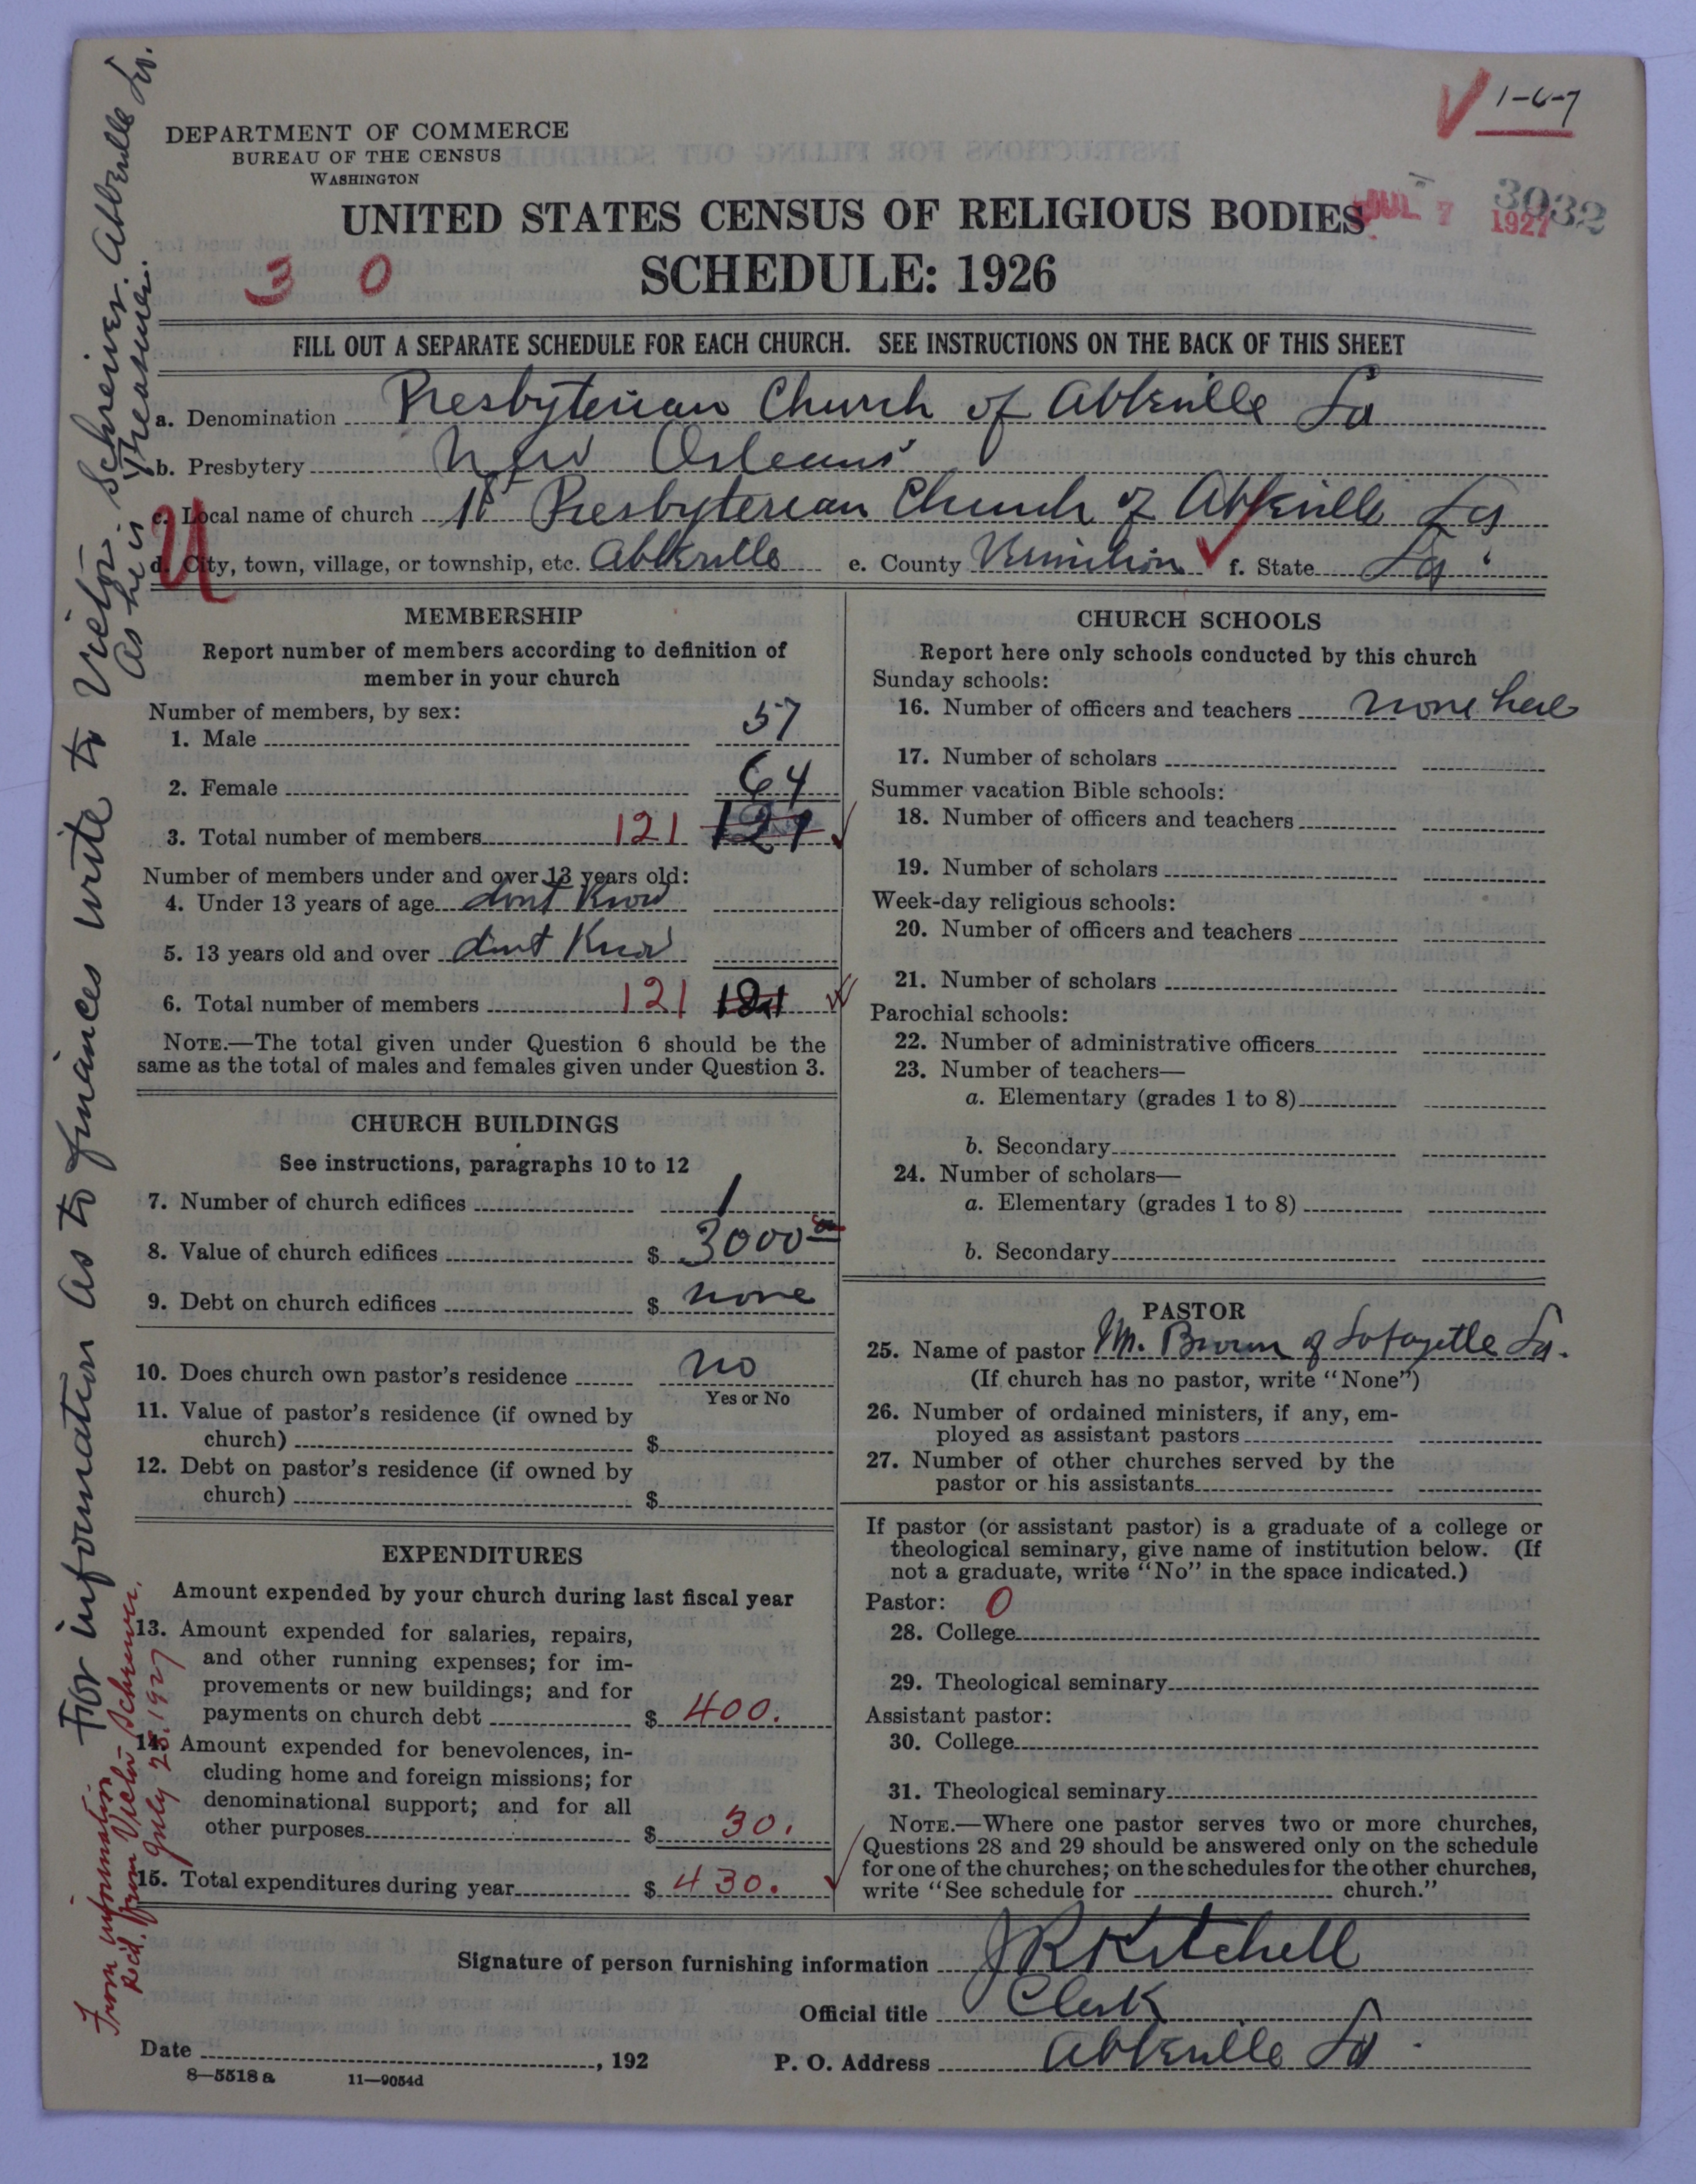 1-6-7
DEPARTMENT OF COMMERCE
BUREAU OF THE CENSUS
WASHINGTON
UNITED STATES CENSUS OF RELIGIOUS BODIES
JUL 7 1927
3032
3 0
SCHEDULE: 1926
FILL OUT A SEPARATE SCHEDULE FOR EACH CHURCH. SEE INSTRUCTIONS ON THE BACK OF THIS SHEET
a. Denomination Presbyterian Church of Abbeville La
b. Presbytery New Orleans
c. Local name of church 1st Presbyterian Church of Abbeville La
U
d. City, town, village, or township, etc. Abbeville e. County Vermilion f. State La.
MEMBERSHIP
Report number of members according to definition of
member in your church
Number of members, by sex:
1. Male 57
2. Female 64
3. Total number of members 121 121
Number of members under and over 13 years old:
4. Under 13 years of age dont Know
5. 13 years old and over dont Know
6. Total number of members 121 121
NOTE.—The total given under Question 6 should be the
same as the total of males and females given under Question 3.
CHURCH BUILDINGS
See instructions, paragraphs 10 to 12
7. Number of church edifices 1
8. Value of church edifices $ 3000
9. Debt on church edifices $ none
10. Does church own pastor's residence no
Yes or No
11. Value of pastor's residence (if owned by
church) $
12. Debt on pastor's residence (if owned by
church) $
EXPENDITURES
Amount expended by your church during last fiscal year
13. Amount expended for salaries, repairs,
and other running expenses; for im-
provements or new buildings; and for
payments on church debt $ 400.
14. Amount expended for benevolences, in-
cluding home and foreign missions; for
denominational support; and for all
other purposes $ 30.
15. Total expenditures during year $ 430.
CHURCH SCHOOLS
Report here only schools conducted by this church
Sunday schools:
16. Number of officers and teachers none here
17. Number of scholars
Summer vacation Bible schools:
18. Number of officers and teachers
19. Number of scholars
Week-day religious schools:
20. Number of officers and teachers
21. Number of scholars
Parochial schools:
22. Number of administrative officers
23. Number of teachers—
a. Elementary (grades 1 to 8)
b. Secondary
24. Number of scholars—
a. Elementary (grades 1 to 8)
b. Secondary
PASTOR
25. Name of pastor Mr. Brown of Lafayette La.
(If church has no pastor, write "None")
26. Number of ordained ministers, if any, em-
ployed as assistant pastors
27. Number of other churches served by the
pastor or his assistants
If pastor (or assistant pastor) is a graduate of a college or
theological seminary, give name of institution below. (If
not a graduate, write "No" in the space indicated.)
Pastor: 0
28. College
29. Theological seminary
Assistant pastor:
30. College
31. Theological seminary
NOTE.—Where one pastor serves two or more churches,
Questions 28 and 29 should be answered only on the schedule
for one of the churches; on the schedules for the other churches,
write "See schedule for church."
Signature of person furnishing information J R Kitchell
Official title Clerk
Date , 192 P. O. Address Abbeville La.
8—5518 a 11—9054d
For information as to finances write to Victor Schreiver. Abbeville La.
As he is Treasurer.
From information
Rec'd. from Victor Schriever.
July 28. 1927